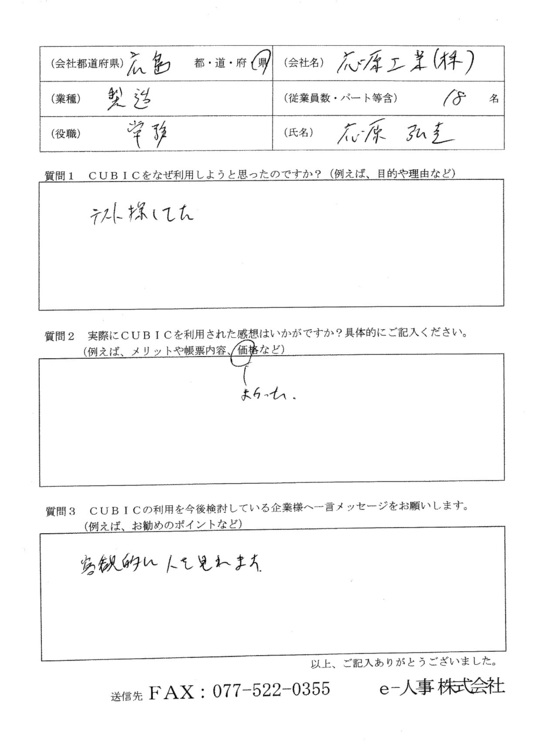 （会社都道府県） 広島 都・道・府・県 （会社名） 応原工業(株)
（業種） 製造 （従業員数・パート等含） 18 名
（役職） 常務 （氏名） 応原
質問１ ＣＵＢＩＣをなぜ利用しようと思ったのですか？（例えば、目的や理由など）
テスト探してた
質問２ 実際にＣＵＢＩＣを利用された感想はいかがですか？具体的にご記入ください。
（例えば、メリットや帳票内容、価格など）
よかった．
質問３ ＣＵＢＩＣの利用を今後検討している企業様へ一言メッセージをお願いします。
（例えば、お勧めのポイントなど）
客観的に人を見れます
以上、ご記入ありがとうございました。
送信先 ＦＡＸ：077-522-0355 e-人事株式会社